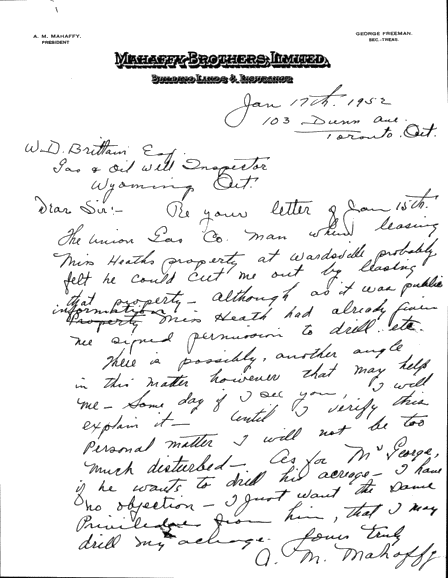 A. M. MAHAFFY.
PRESIDENT
GEORGE FREEMAN.
SEC.-TREAS.
MAHAFFY BROTHERS, LIMITED,
Jan 17th. 1952
103 Dunn ave.
Toronto. Ont.
W.D. Brittain Esq.
Gas & Oil Well Inspector
Wyoming Ont.
Dear Sir:- Re your letter of Jan 15th.
The Union Gas Co. man when leasing
Miss Heaths property at Wardsville probably
felt he could cut me out by leasing
that property - although as it was public
information Miss Heath had already given
me signed permission to drill. etc.
There is possibly, another angle
in this matter however that may help
me - Some day if I see you, I will
explain it - until I verify this
Personal matter I will not be too
much disturbed -. As for Mr George,
if he wants to drill his acreage - I have
no objection - I just want the same
Priviledges from him, that I may
drill my acreage. Yours truly
A. M. Mahaffy